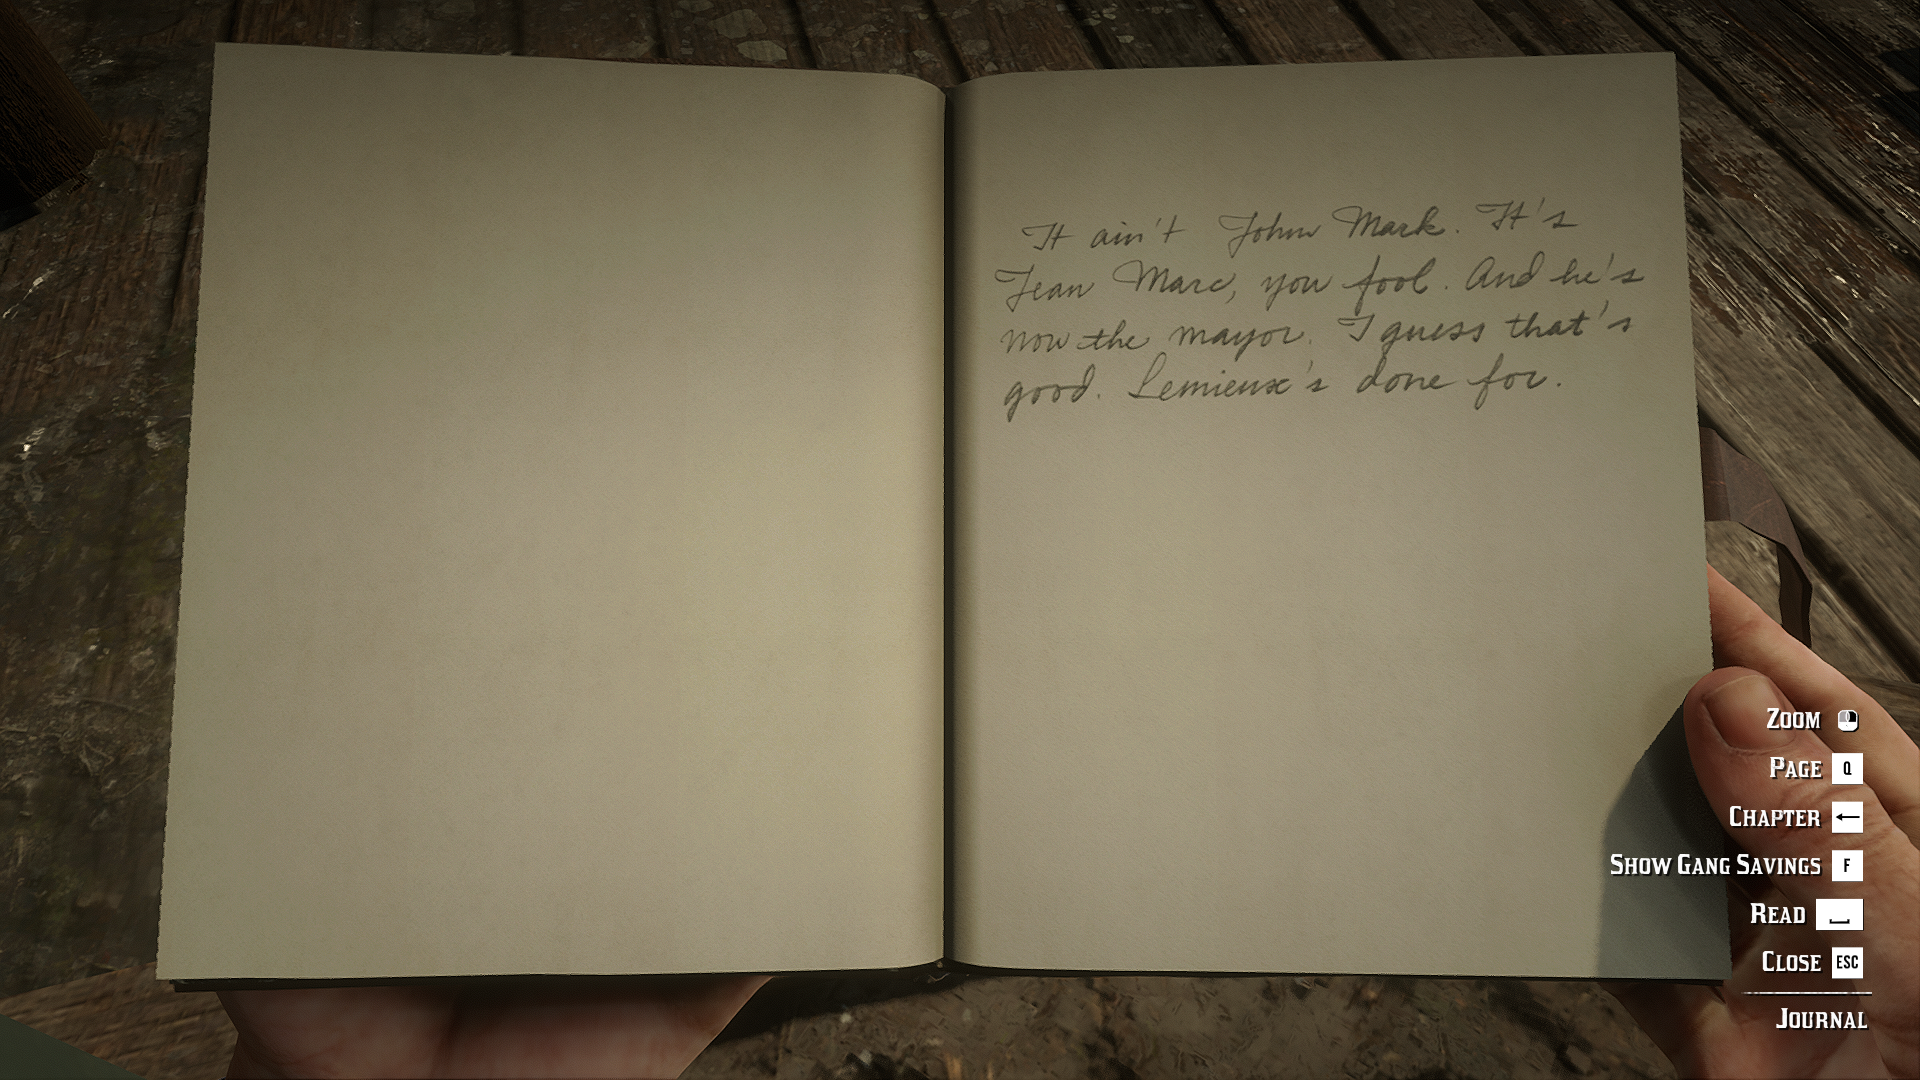 It ain't John Mark. It's
Jean Marc, you fool. And he's
now the mayor. I guess that's
good. Lemieux's done for.
Zoom
Page Q
Chapter ←
Show Gang Savings F
Read
Close ESC
Journal